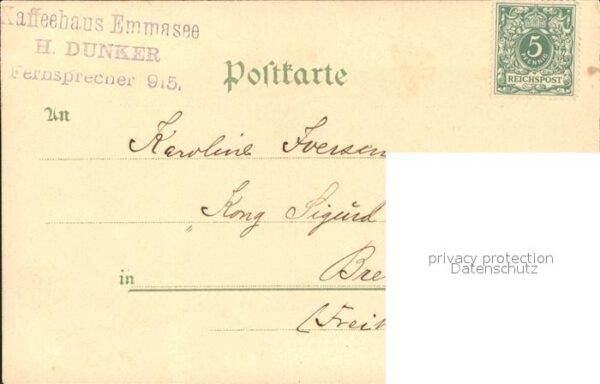 Kaffeehaus Emmasee
H. DUNKER
Fernsprecher 915.
5
PFENNIG
REICHSPOST
Postkarte
An
Karoline Iversen
„Kong Sigurd
in Bre
(Frei
privacy protection
Datenschutz